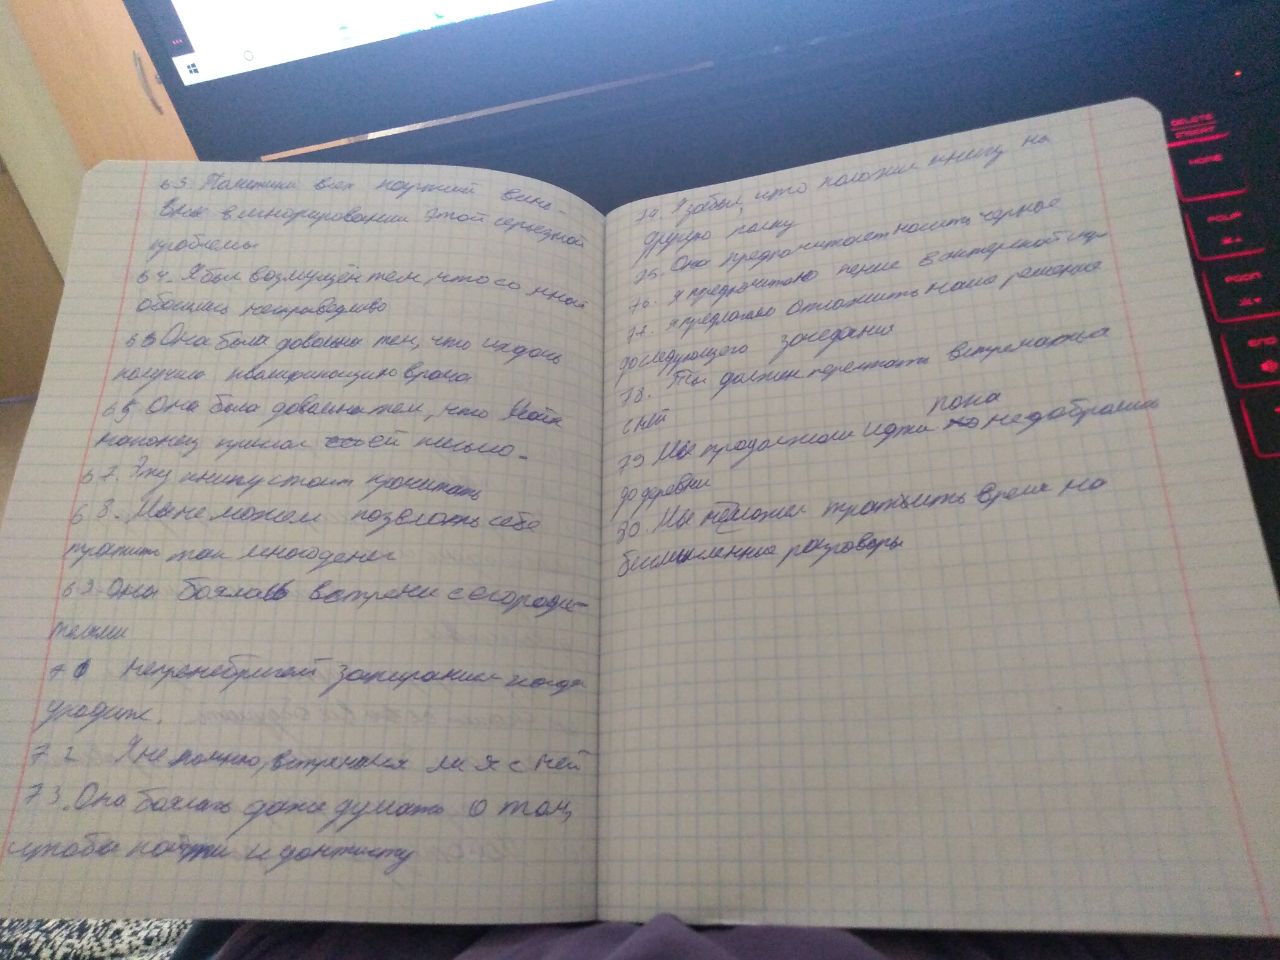 63. Политики всех партий вино-
вны в игнорировании этой серьезной
проблемы
64. Я был возмущён тем, что со мной
обошлись несправедливо
Она была довольна тем, что их дочь
получила квалификацию врача
65. Она была довольна тем, что Майк
наконец прислал ей письмо.
67. Эту книгу стоит прочитать
68. Мы не можем позволить себе
тратить так много денег
69. Они боялась встречи с его роди-
телями
Непренебригай запиранием когда
уходиш.
72 Я не помню, встречался ли я с ней
73. Она боялась даже думать о том,
чтобы пойти к дантисту
74. Я забыл, что положил книгу на
другую полку
75. Она предпочитает носить черное
76. Я предпочитаю пение
77. Я предлагаю отложить наше решение
до следующего заседания
78. Ты должен перестать встречаться
с ней
79 Мы продолжали идти пока не добрались
до деревни
80. Мы не можем тратить время на
бесмысленные разговоры
DELETE
INSERT
HOME
PGUP
PGDN
END